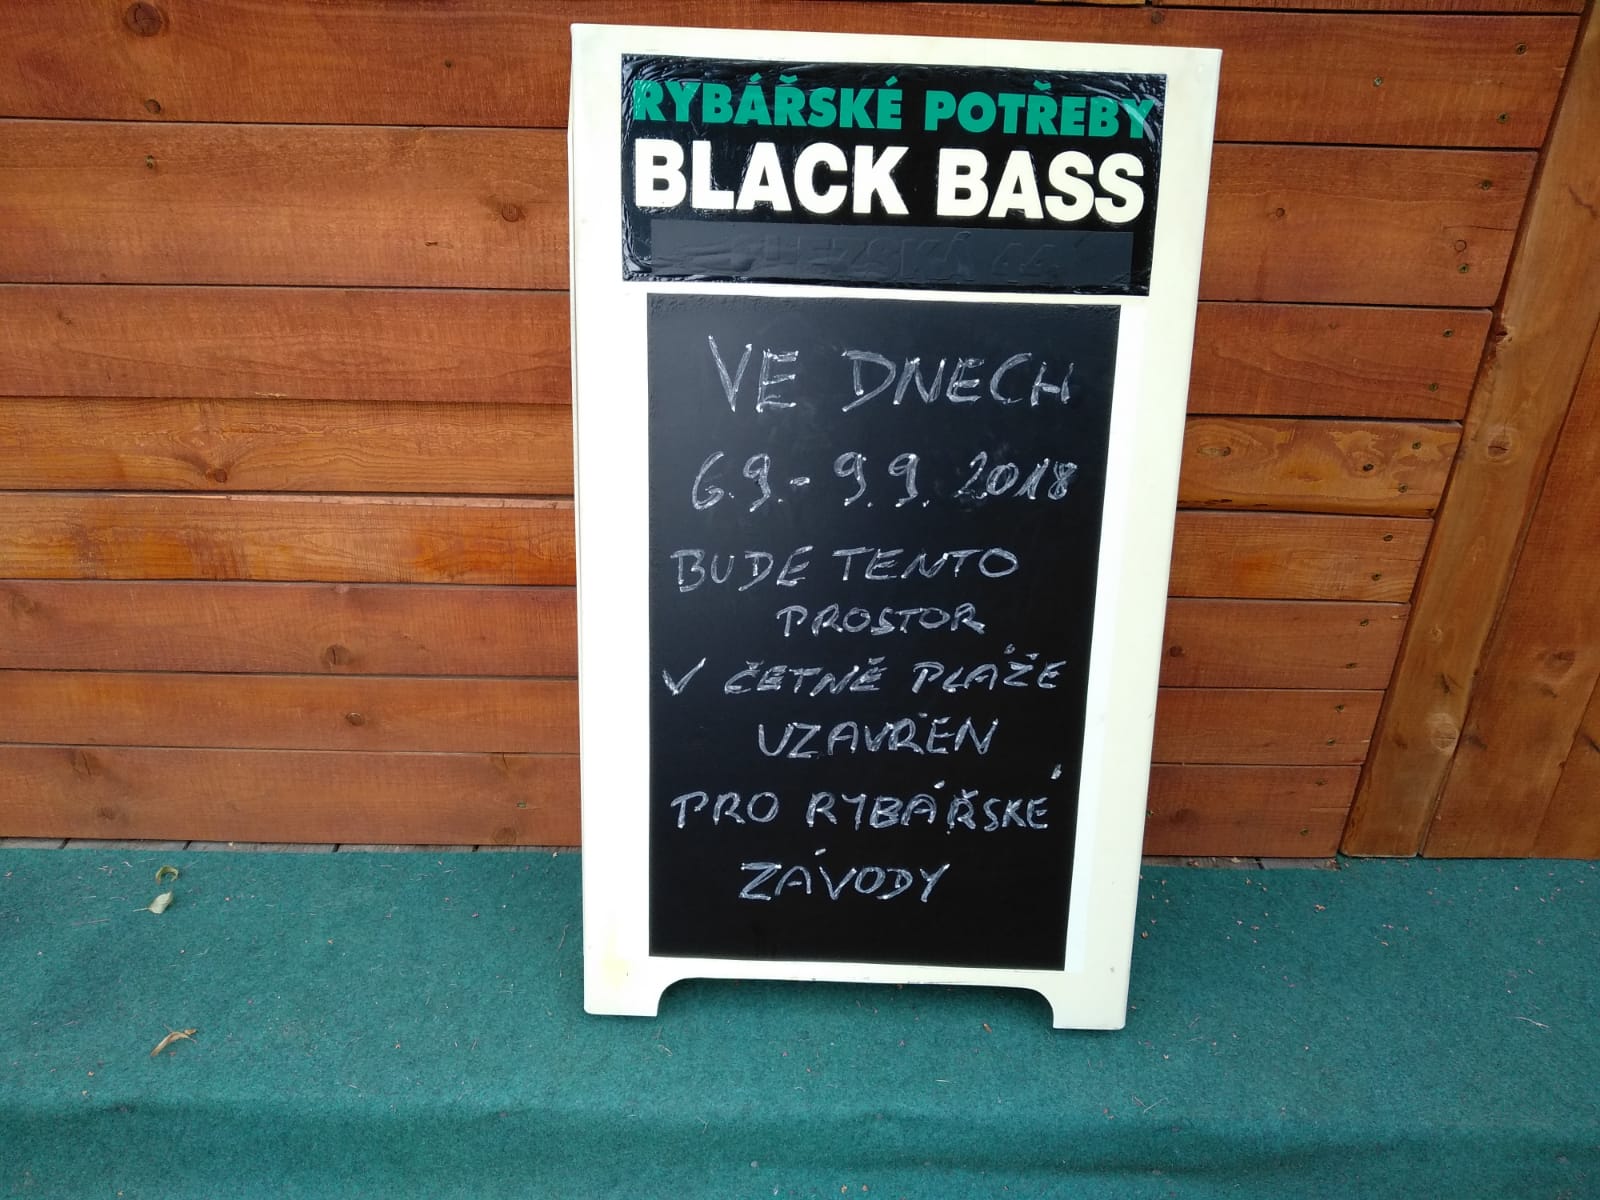 RYBÁŘSKÉ POTŘEBY
BLACK BASS
SLEZSKÁ 44
VE DNECH
6.9.- 9.9. 2018
BUDE TENTO
PROSTOR
V ČETNĚ PLÁŽE
UZAVŘEN
PRO RYBÁŘSKÉ
ZÁVODY